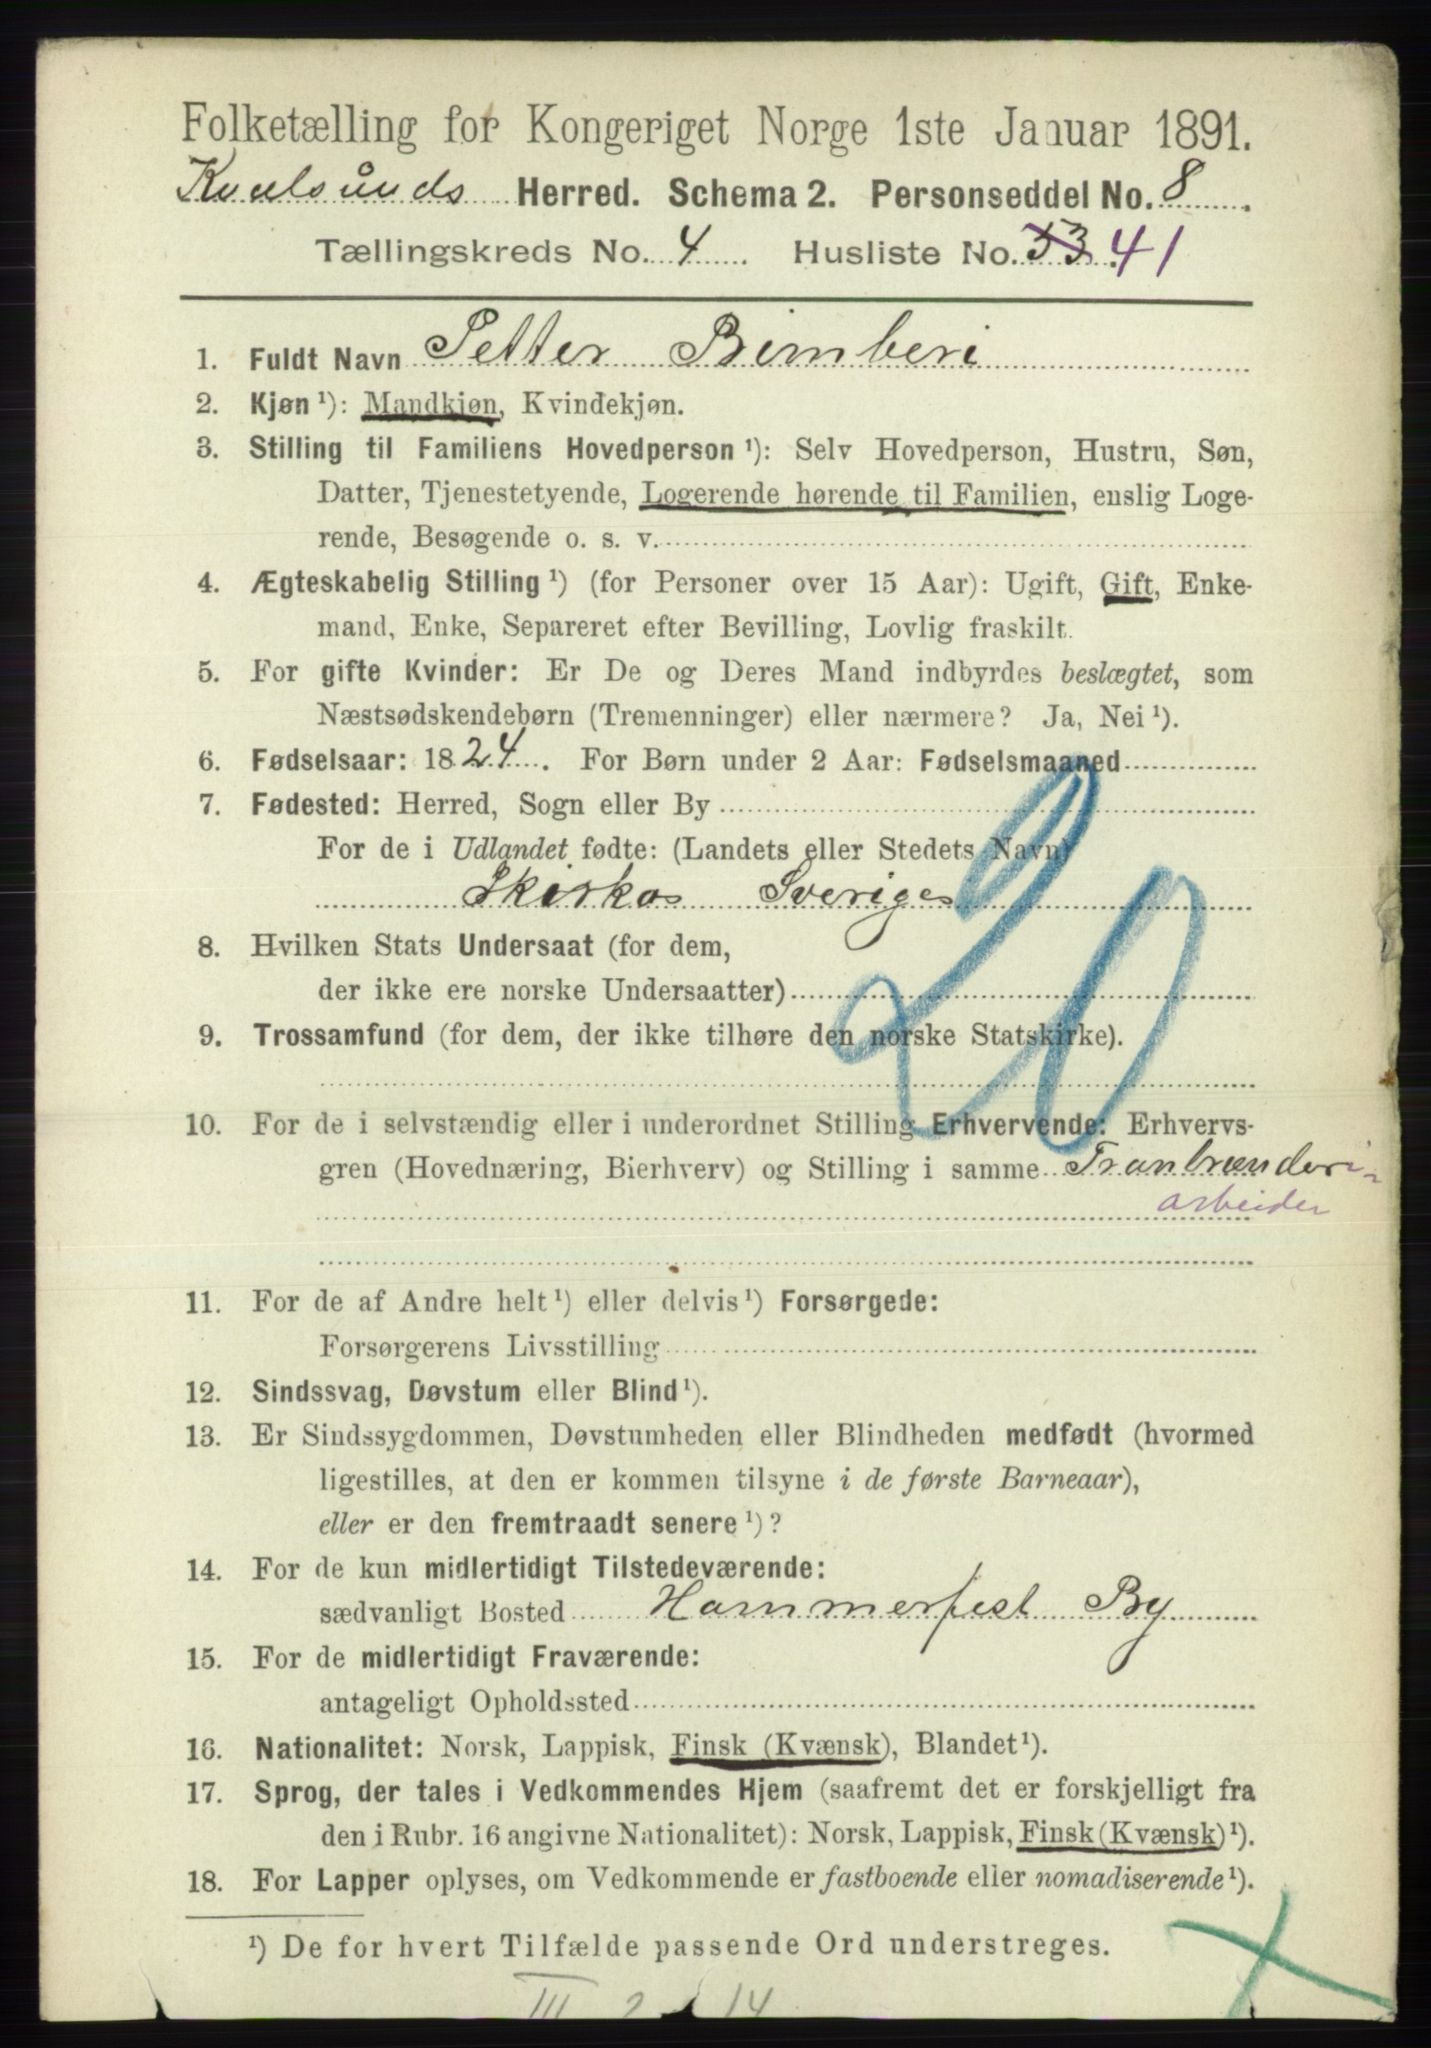 Folketælling for Kongeriget Norge 1ste Januar 1891.
Kvalsunds Herred. Schema 2. Personseddel No. 8
Tællingskreds No. 4. Husliste No. 53 41
1. Fuldt Navn Petter Bimberi
2. Kjøn ¹): Mandkjøn, Kvindekjøn.
3. Stilling til Familiens Hovedperson ¹): Selv Hovedperson, Hustru, Søn,
Datter, Tjenestetyende, Logerende hørende til Familien, enslig Loge-
rende, Besøgende o. s. v.
4. Ægteskabelig Stilling ¹) (for Personer over 15 Aar): Ugift, Gift, Enke-
mand, Enke, Separeret efter Bevilling, Lovlig fraskilt.
5. For gifte Kvinder: Er De og Deres Mand indbyrdes beslægtet, som
Næstsødskendebørn (Tremenninger) eller nærmere? Ja, Nei ¹).
6. Fødselsaar: 1824. For Børn under 2 Aar: Fødselsmaaned
7. Fødested: Herred, Sogn eller By
For de i Udlandet fødte: (Landets eller Stedets Navn)
Sveriges
20
8. Hvilken Stats Undersaat (for dem,
der ikke ere norske Undersaatter)
9. Trossamfund (for dem, der ikke tilhøre den norske Statskirke).
10. For de i selvstændig eller i underordnet Stilling Erhvervende: Erhvervs-
gren (Hovednæring, Bierhverv) og Stilling i samme Tranbrænderi-
arbeider
11. For de af Andre helt ¹) eller delvis ¹) Forsørgede:
Forsørgerens Livsstilling
12. Sindssvag, Døvstum eller Blind ¹).
13. Er Sindssygdommen, Døvstumheden eller Blindheden medfødt (hvormed
ligestilles, at den er kommen tilsyne i de første Barneaar),
eller er den fremtraadt senere ¹)?
14. For de kun midlertidigt Tilstedeværende:
sædvanligt Bosted Hammerfest By
15. For de midlertidigt Fraværende:
antageligt Opholdssted
16. Nationalitet: Norsk, Lappisk, Finsk (Kvænsk), Blandet ¹).
17. Sprog, der tales i Vedkommendes Hjem (saafremt det er forskjelligt fra
den i Rubr. 16 angivne Nationalitet): Norsk, Lappisk, Finsk (Kvænsk) ¹).
18. For Lapper oplyses, om Vedkommende er fastboende eller nomadiserende ¹).
¹) De for hvert Tilfælde passende Ord understreges.
III 2 14